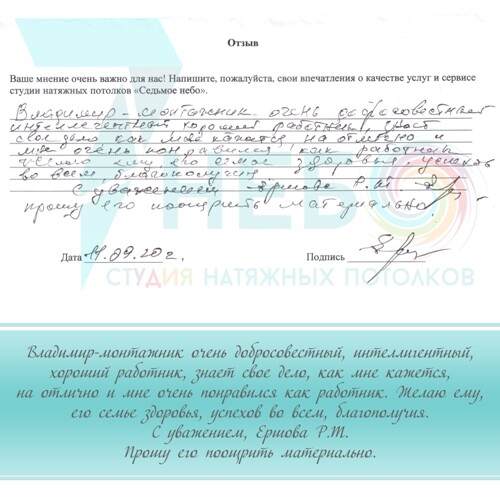 Отзыв
Ваше мнение очень важно для нас! Напишите, пожалуйста, свои впечатления о качестве услуг и сервисе
студии натяжных потолков «Седьмое небо».
Владимир-монтажник очень добросовестный
интеллигентный хороший работник, знает
свое дело как мне кажется на отлично и
мне очень понравился как работник
Желаю ему его семье здоровья, успехов
во всем, благополучия
С уважением Ершова Р.М
прошу его поощрить материально.
Дата 11.09.20 г.
Подпись
НЕБО
СТУДИЯ НАТЯЖНЫХ ПОТОЛКОВ
Владимир-монтажник очень добросовестный, интеллигентный,
хороший работник, знает свое дело, как мне кажется,
на отлично и мне очень понравился как работник. Желаю ему,
его семье здоровья, успехов во всем, благополучия.
С уважением, Ершова Р.М.
Прошу его поощрить материально.